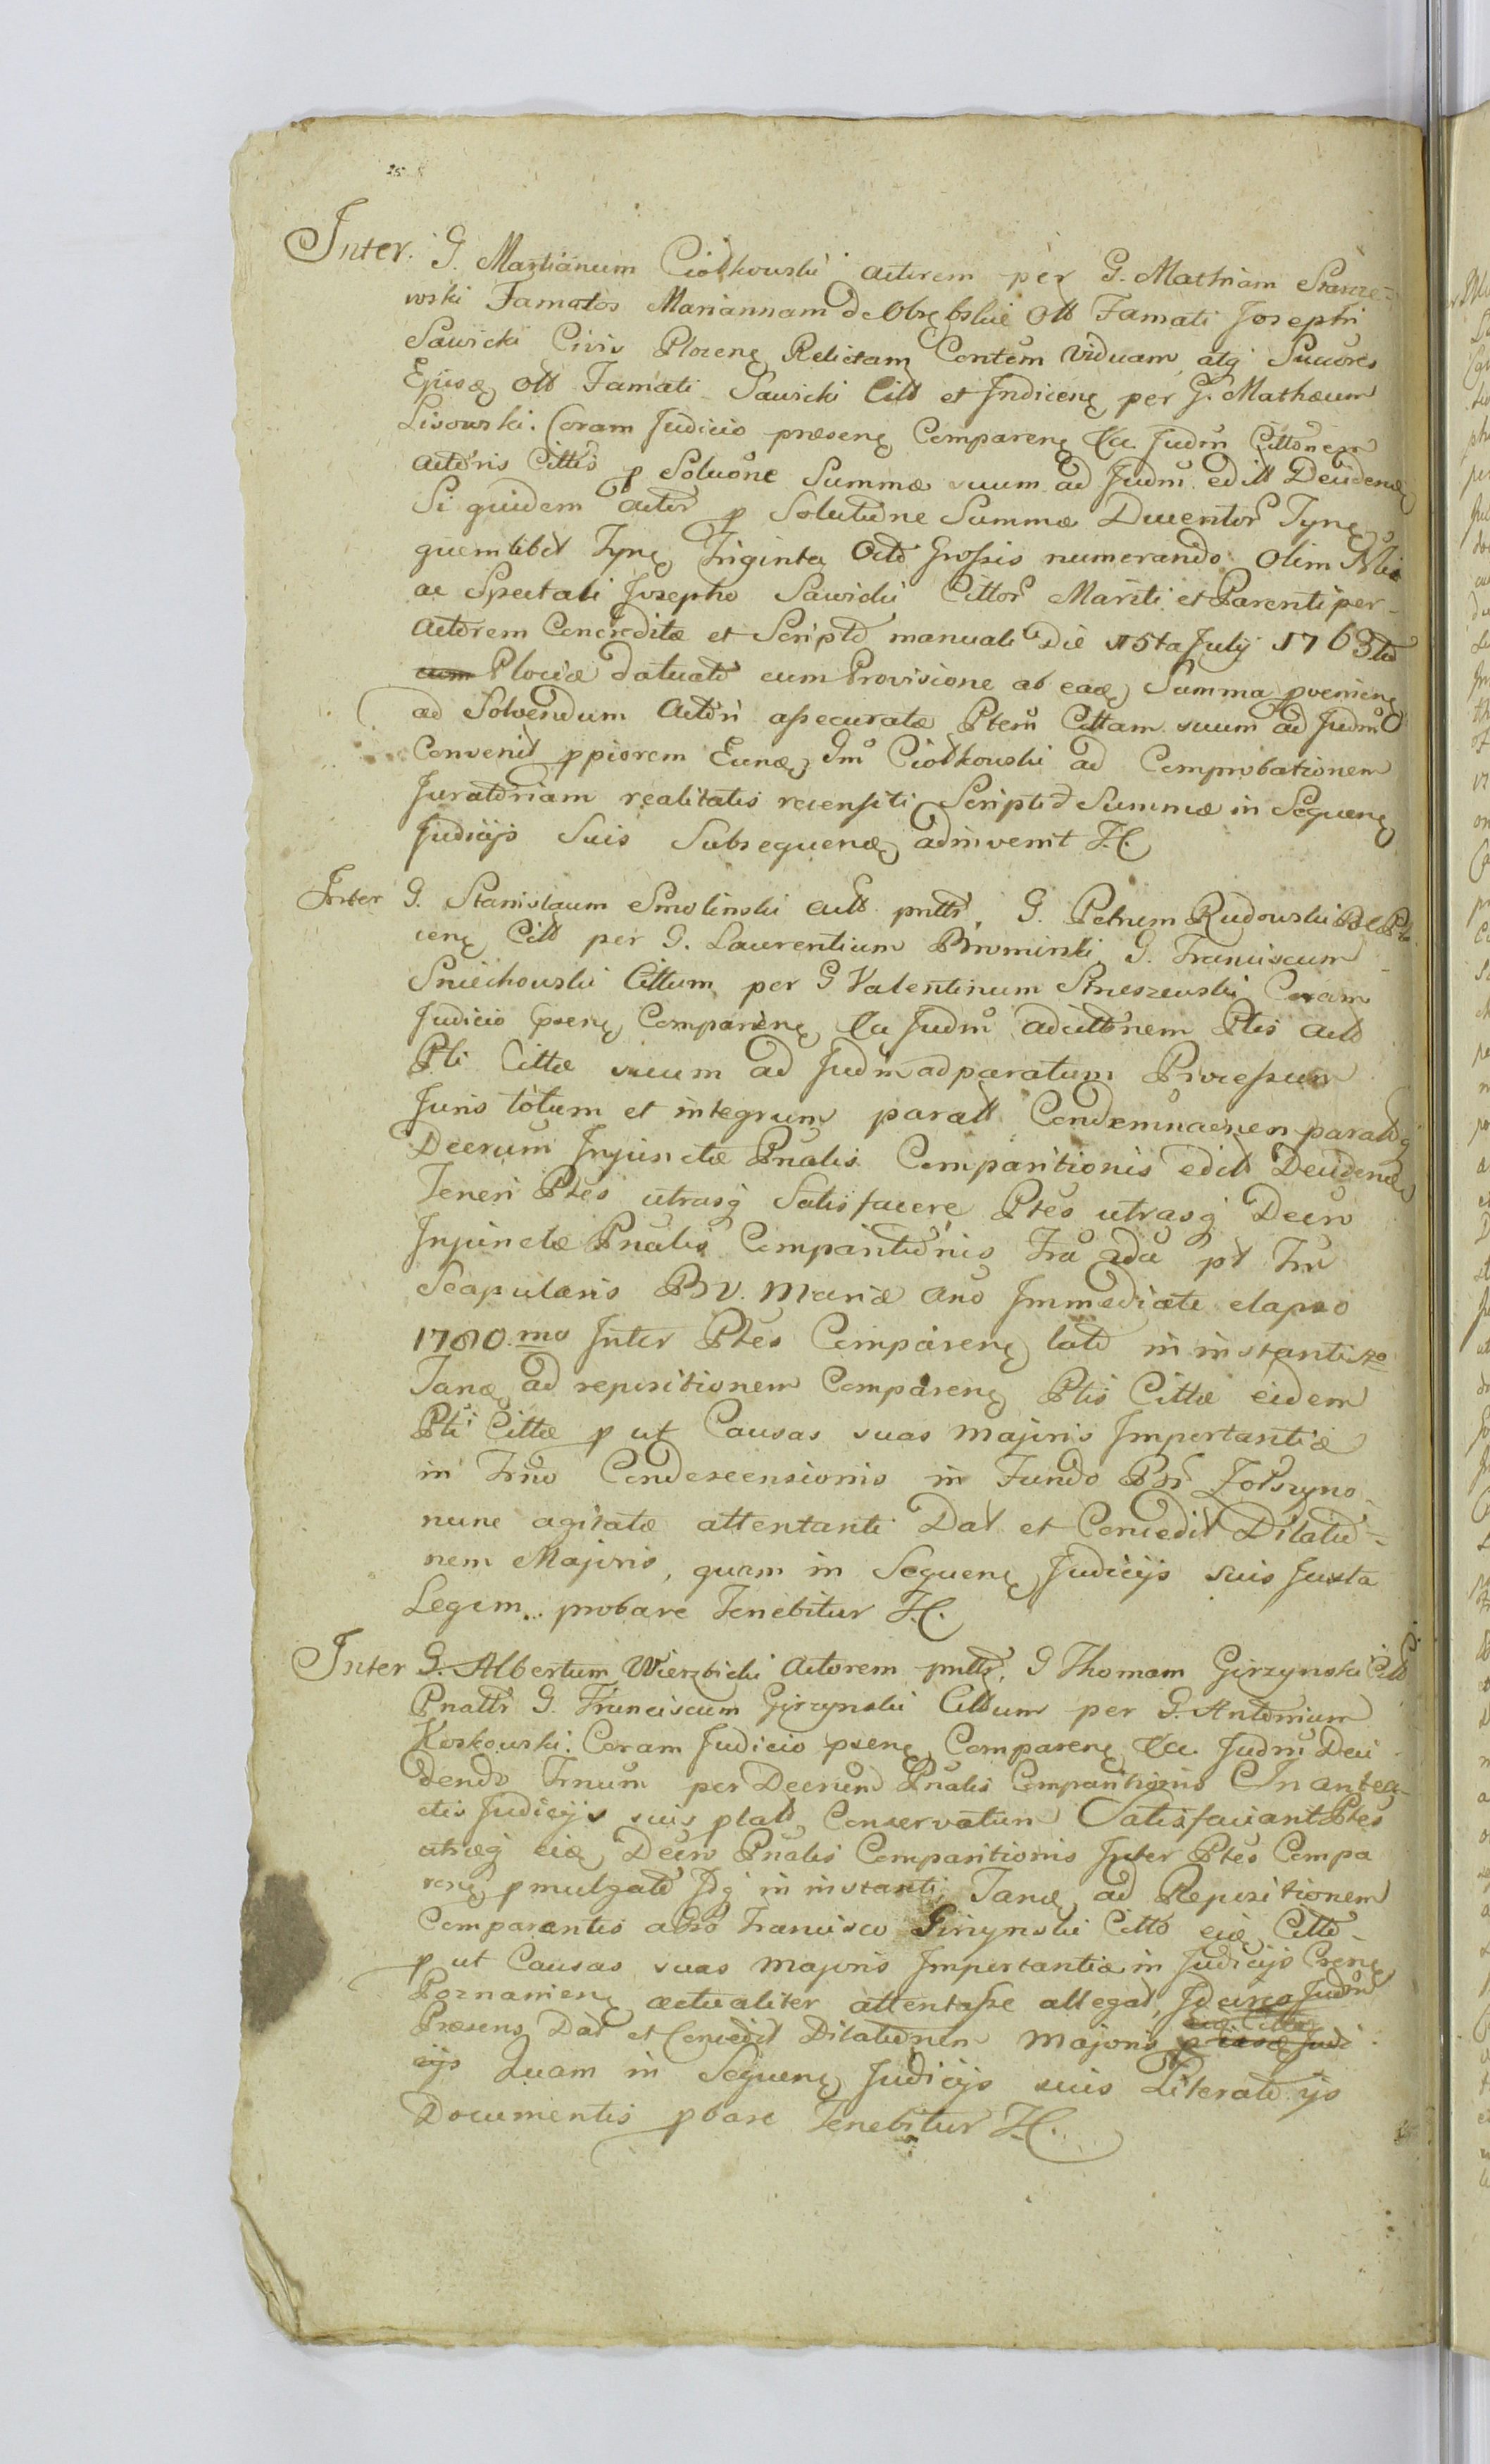 Inter. G. Martianum Ciołkowski Actorem per G. Mathiam Starze-
wski Famatos Mariannam de Obrębskie Olt Famati Josephi
Sawicki Civis Plocenę Relictam Contem Viduam, atq Succores
Ejusdę Olt Famati Sawicki Citt et Indicenę per G. Mathæum
Lisowski. Coram Judicio præsenę Comparenę &a. Judm Cittonem
Actoris Cittis p Soluone Summæ suum ad Judm editt Decidendę
Si quidem Actor p Solutione Summæ Ducentor Tynę
quemlibet Tynę Triginta Octo Grossis numerando olim
ac Spectali Josepho Sawicki Cittor Mariti et Parenti per-
Actorem Concreditæ et Scripto manuali Die 15ta Julij 1763tio
Plociæ datuato cum Provisione ab eadę Summa provenienę
ad Solvendum Actori assecuratæ Ptem Cittam suum ad Judm
Convenit ppiorem Eundę Gm Ciołkowski ad Comprobationem
Juratoriam realitatis recensiti Scripti & Summæ in Sequenę
Judicijs Suis Subsequendę adinvenit H.
Inter G. Stanislaum Smolinski Actt pnttr, G. Petrum Rudowski
cenę Citt per G. Laurentium Brominski, G. Franciscum
Sniechowski Cittum per G Valentinum Streszewski Coram
Judicio psenę Comparenę &a Judm adcittonem Ptis Actt
Pti Cittæ suum ad Judm adparatum Processum
Juris totum et integrum paratt Condemnaonen paratoq
Decrum Injunctæ Pnalis Comparitionis edit Decidendę
Teneri Ptes utrasq Satisfacere Ptes utrasq Decro
Injunctæ Pnalis Comparitionis Fra ada pt Frn
Scapularis B V. Mariæ Ano Immediate elapso
1780.mo Inter Ptes Comparenę lato in instanti 20
Tandę ad repositionem Comparenę Ptis Cittæ eidem
Pti Cittæ p ut Causas suas majoris Importantiæ
in Trno Condescensionis in Fundo Bor Zołszyno
nunc agitatæ attentanti Dat et Concedit Dilatio-
nem Majoris, quam in Sequenę Judicijs suis Juxta
Legem. probare Tenebitur H.
Inter G. Albertum Wierzbicki Actorem pnttr, G Thomam Girzynski Citt
Pnattr G. Franciscum Girzynski Cittum per G. Antonium
Koskowski. Coram Judicio psenę Comparenę &a Judm Deci
dendo Trnum per Decrum Pnalis Comparitionis In antea-
ctis Judicijs suis plato Conservatum Satisfaciant Ptes
utræq eidę Decro Pnalis Comparitionis Inter Ptes Compa
renę pmulgato Idq in instanti, Tandę ad Repositionem
Comparentis a Gso Francisco Girzynski Citto eidę Citto
p ut Causas suas majoris Importantiæ in Judicijs Crenę
Poznanienę actualiter attentasse allegat, Idcirco Judm
Præsens Dat et Concedit Dilationem Majoris
cijs Quam in Sequenę Judicijs suis Literato ijs
Documentis pbare Tenebitur H.